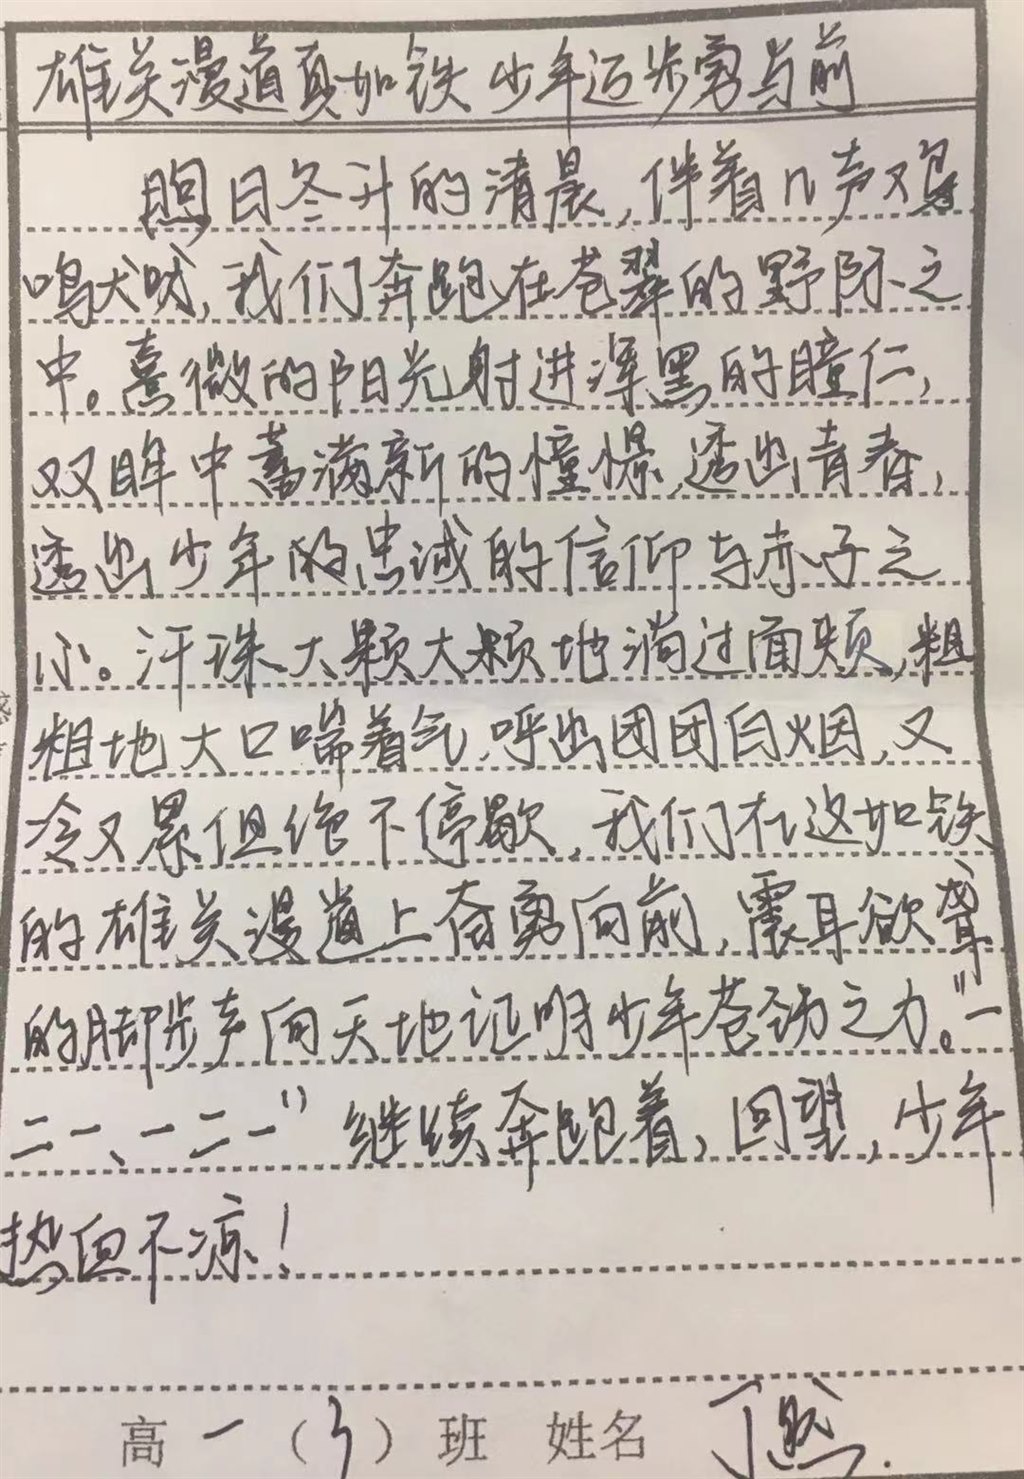 雄关漫道真如铁 少年迈步勇与前
煦日冬升的清晨,伴着几声鸡
鸣犬吠,我们奔跑在苍翠的野际之
中。熹微的阳光射进深黑的瞳仁,
双眸中蓄满新的憧憬,透出青春,
透出少年的忠诚的信仰与赤子之
心。汗珠大颗大颗地淌过面颊,粗
粗地大口喘着气,呼出团团白烟,又
冷又累但绝不停歇,我们在这如铁
的雄关漫道上奋勇向前,震耳欲聋
的脚步声向天地证明少年苍劲之力。"一
二一、一二一"继续奔跑着,回望,少年
热血不凉!
高一(3)班 姓名 丁